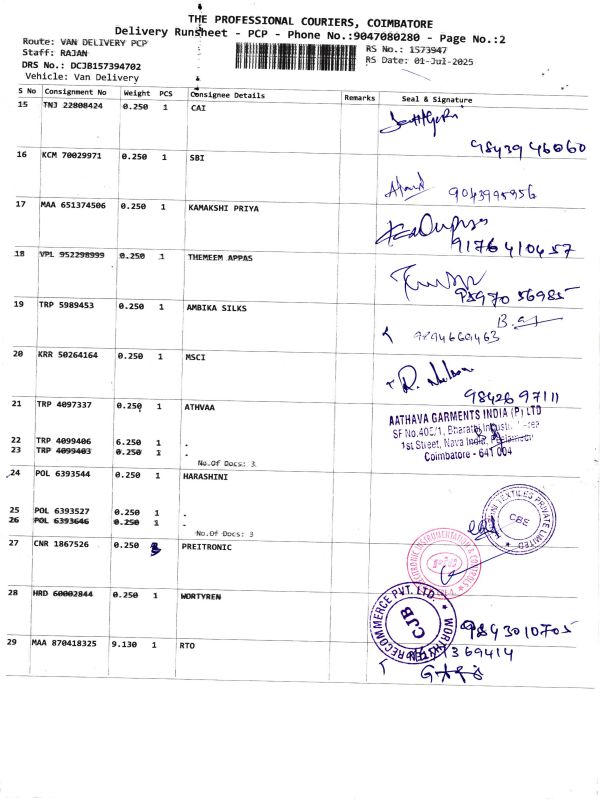 THE PROFESSIONAL COURIERS, COIMBATORE
Delivery Runsheet - PCP - Phone No.:9047080280 - Page No.:2
Route: VAN DELIVERY PCP
Staff: RAJAN
DRS No.: DCJB157394702
Vehicle: Van Delivery
RS No.: 1573947
RS Date: 01-Jul-2025
S No Consignment No Weight PCS Consignee Details Remarks Seal & Signature
15 TNJ 22808424 0.250 1 CAI
9843946060
16 KCM 70029971 0.250 1 SBI
9043995956
17 MAA 651374506 0.250 1 KAMAKSHI PRIYA
9176410457
18 VPL 952298999 0.250 1 THEMEEM APPAS
95970 56985
19 TRP 5989453 0.250 1 AMBIKA SILKS
9894660463
20 KRR 50264164 0.250 1 MSCI
9842697111
21 TRP 4097337 0.250 1 ATHVAA
AATHAVA GARMENTS INDIA (P) LTD
SF No.405/1, Bharathi
1st Street, Nava India,
Coimbatore - 641 004
22 TRP 4099406 6.250 1 .
23 TRP 4099403 0.250 1 .
No.Of Docs: 3
24 POL 6393544 0.250 1 HARASHINI
25 POL 6393527 0.250 1 .
26 POL 6393646 0.250 1 .
No.Of Docs: 3
TEXTILES PRIVATE LIMITED
CBE
27 CNR 1867526 0.250 PREITRONIC
INSTRUMENTATION & CONTROLS
28 HRD 60002844 0.250 1 WORTYREN
RECOMMERCE PVT. LTD.
CJB
9843010705
29 MAA 870418325 9.130 1 RTO
369414